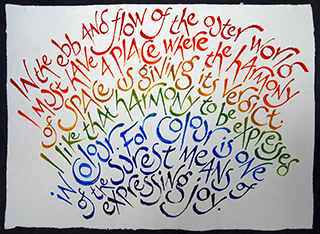 In the ebb and flow of the outer world
I must have a place where the harmony
of space is giving its verdict.
I live that harmony to be expressed
in colour. For colour is one
of the surest means
of expressing joy.